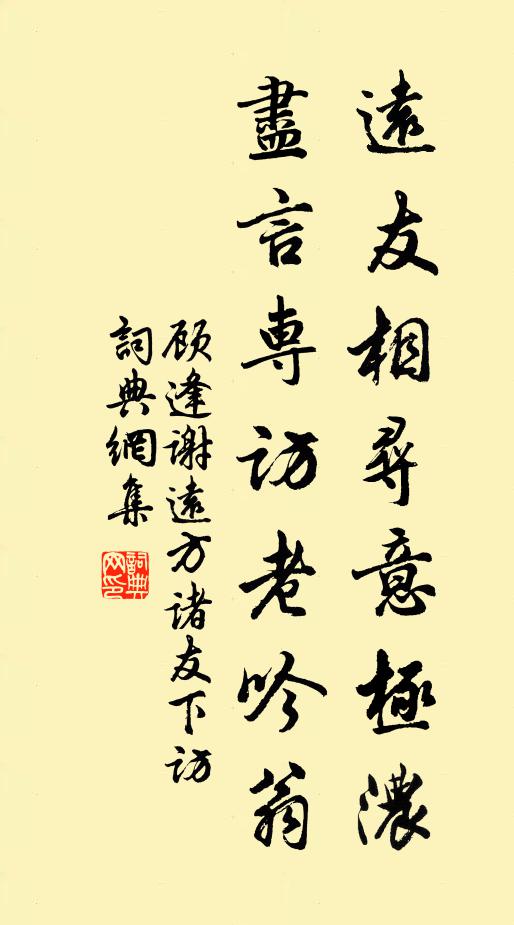 遠友相尋意極濃
盡言専訪老吟翁
顾逢謝遠方诸友下訪
詞典網集
詞典網印